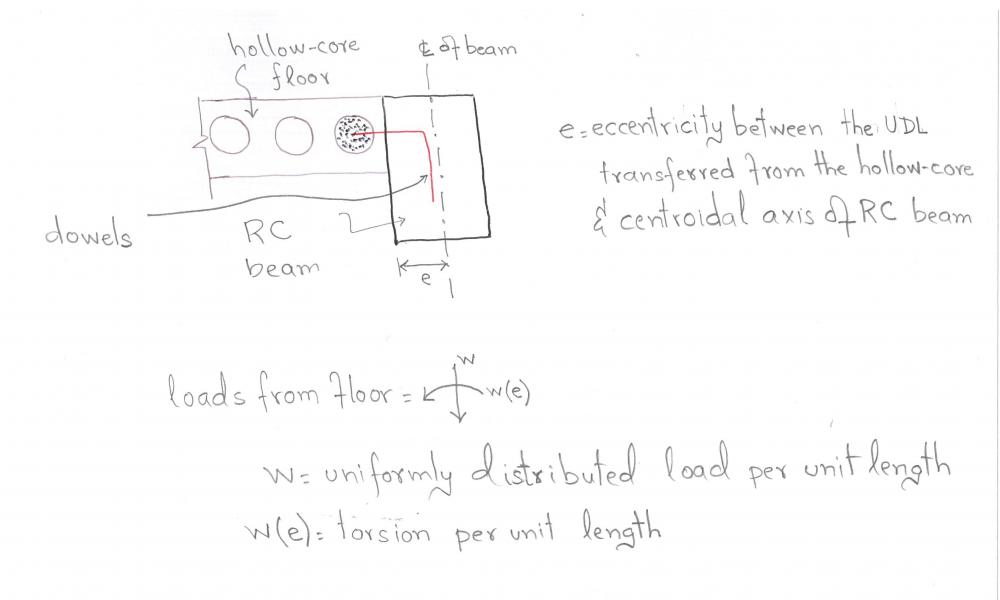 hollow-core
floor
℄ of beam
e = eccentricity between the UDL
transferred from the hollow-core
& centroidal axis of RC beam
dowels
RC
beam
e
loads from floor = w w(e)
w = uniformly distributed load per unit length
w(e) = torsion per unit length